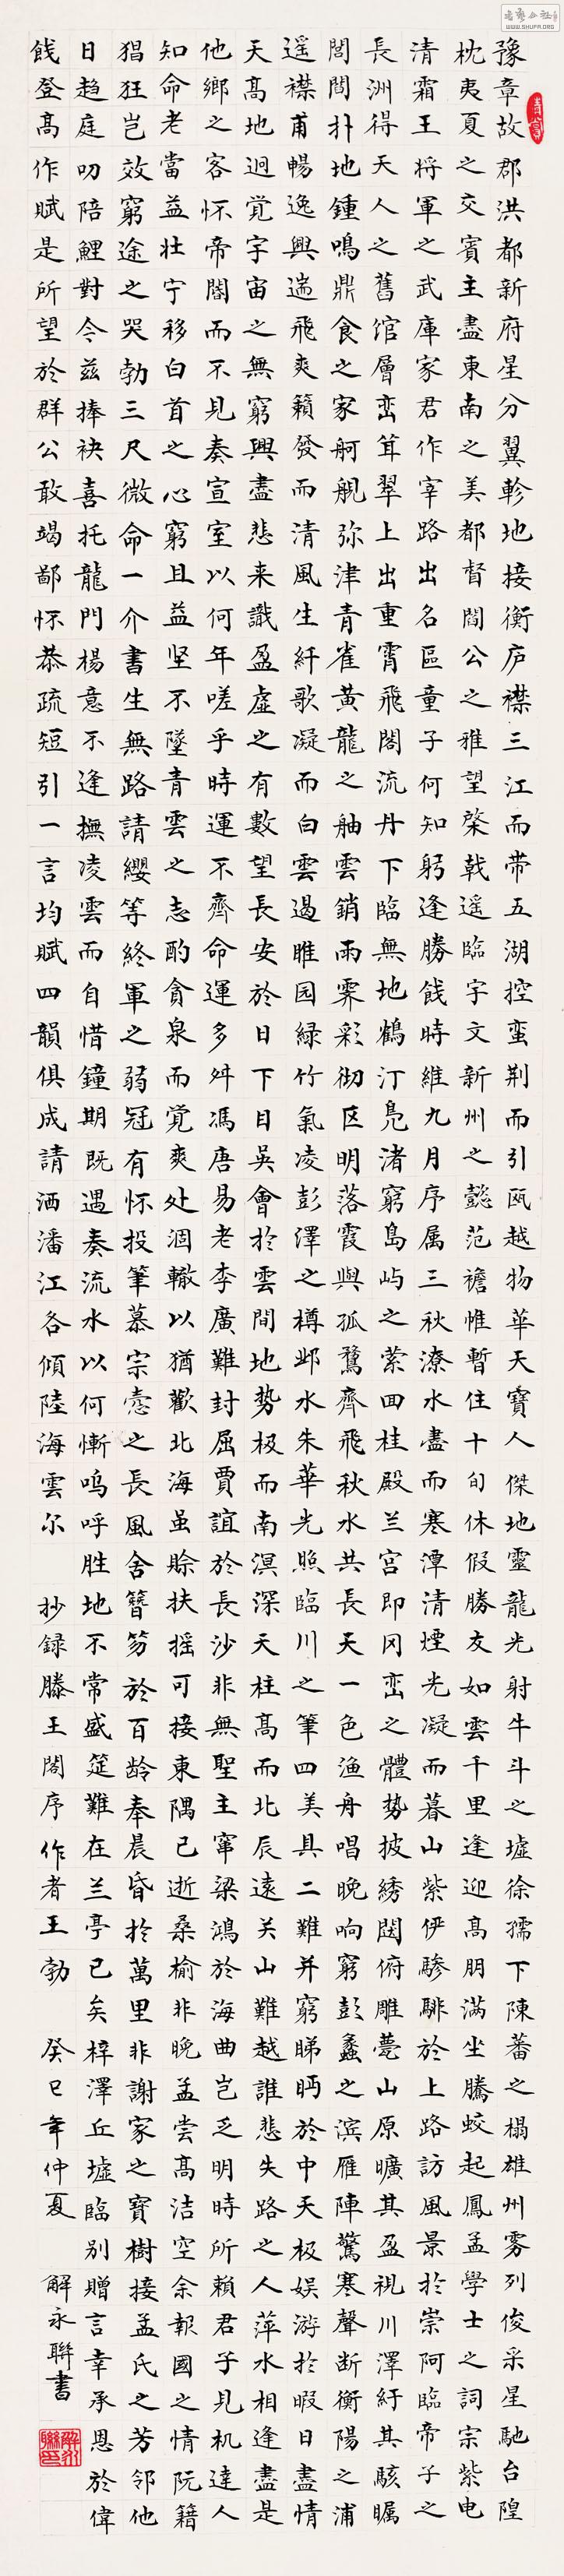 豫章故郡洪都新府星分翼軫地接衡庐襟三江而带五湖控蛮荆而引瓯越物華天寶人傑地靈龍光射牛斗之墟徐孺下陳蕃之榻雄州雾列俊采星馳台隍
枕夷夏之交賓主盡東南之美都督閻公之雅望棨戟遥臨宇文新州之懿范襜惟暫住十旬休假勝友如雲千里逢迎高朋满坐騰蛟起鳳孟學士之詞宗紫电
清霜王将軍之武庫家君作宰路出名區童子何知躬逢勝餞時維九月序属三秋潦水盡而寒潭清煙光凝而暮山紫俨驂騑於上路訪風景於崇阿臨帝子之
長洲得天人之舊馆層峦耸翠上出重霄飛閣流丹下臨無地鶴汀凫渚窮島屿之萦回桂殿兰宫即冈峦之體势披绣闼俯雕甍山原曠其盈視川澤紆其駭矚
閭閻扑地鍾鳴鼎食之家舸艦弥津青雀黄龍之舳雲銷雨霁彩彻区明落霞與孤鶩齊飛秋水共長天一色渔舟唱晚响窮彭蠡之滨雁陣驚寒聲断衡陽之浦
遥襟甫暢逸興遄飛爽籟發而清風生纤歌凝而白雲遏睢园緑竹氣凌彭澤之樽邺水朱華光照臨川之筆四美具二難并窮睇眄於中天极娱游於暇日盡情
天高地迥觉宇宙之無窮興盡悲来識盈虚之有數望長安於日下目吴會於雲間地势极而南溟深天柱高而北辰遠关山難越誰悲失路之人萍水相逢盡是
他鄉之客怀帝閽而不見奏宣室以何年嗟乎時運不齊命運多舛馮唐易老李廣難封屈賈誼於長沙非無聖主窜梁鴻於海曲岂乏明時所賴君子見机達人
知命老當益壮宁移白首之心窮且益坚不墜青雲之志酌貪泉而觉爽处涸轍以猶歡北海虽賒扶摇可接東隅已逝桑榆非晚孟尝高洁空余報國之情阮籍
猖狂岂效窮途之哭勃三尺微命一介書生無路請纓等終軍之弱冠有怀投筆慕宗悫之長風舍簪笏於百龄奉晨昏於萬里非謝家之寶樹接孟氏之芳邻他
日趋庭叨陪鯉對今兹捧袂喜托龍門楊意不逢撫凌雲而自惜鐘期既遇奏流水以何慚呜呼胜地不常盛筵難在兰亭已矣梓澤丘墟臨别贈言幸承恩於偉
餞登高作賦是所望於群公敢竭鄙怀恭疏短引一言均賦四韻俱成請洒潘江各傾陸海雲尔 抄録滕王閣序作者王勃 癸巳年仲夏 解永聯書
WWW.SHUFA.ORG